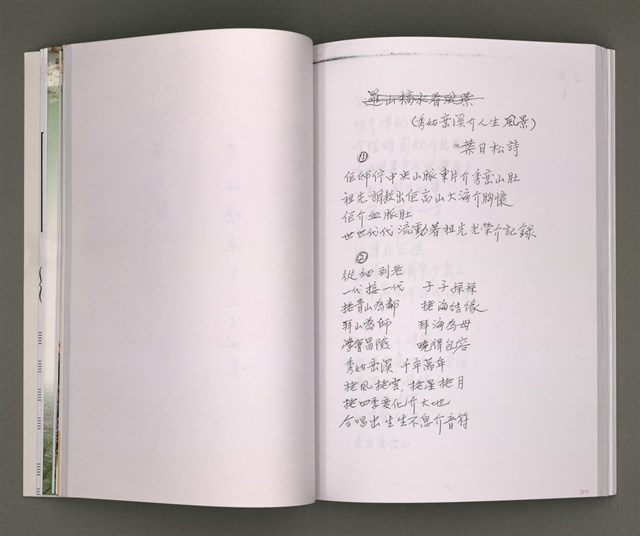 遊山摘水看風景
(秀姑巒溪介人生風景)
葉日松詩
①
佢邸佇中央山脈東片介秀巒山肚
祖先調教出佢高山大海介胸懷
佢介血脈肚
世世代代流動着祖先光榮介記錄
②
從細到老
一代接一代 子子孫孫
挽青山為鄰 挽海結緣
拜山為師 拜海為母
學會冒險 曉得包容
秀姑巒溪 千年萬年
挽風挽雲,挽星挽月
挽四季變化介大地
合唱出生生不息介音符